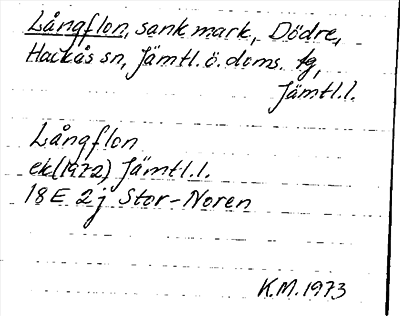 Långflon, sank mark, Dödre,
Hackås sn, Jämtl. ö. doms. tg,
Jämtl.l.
Långflon
ek(1972) Jämtl.l.
18E 2j Stor-Noren
K.M. 1973